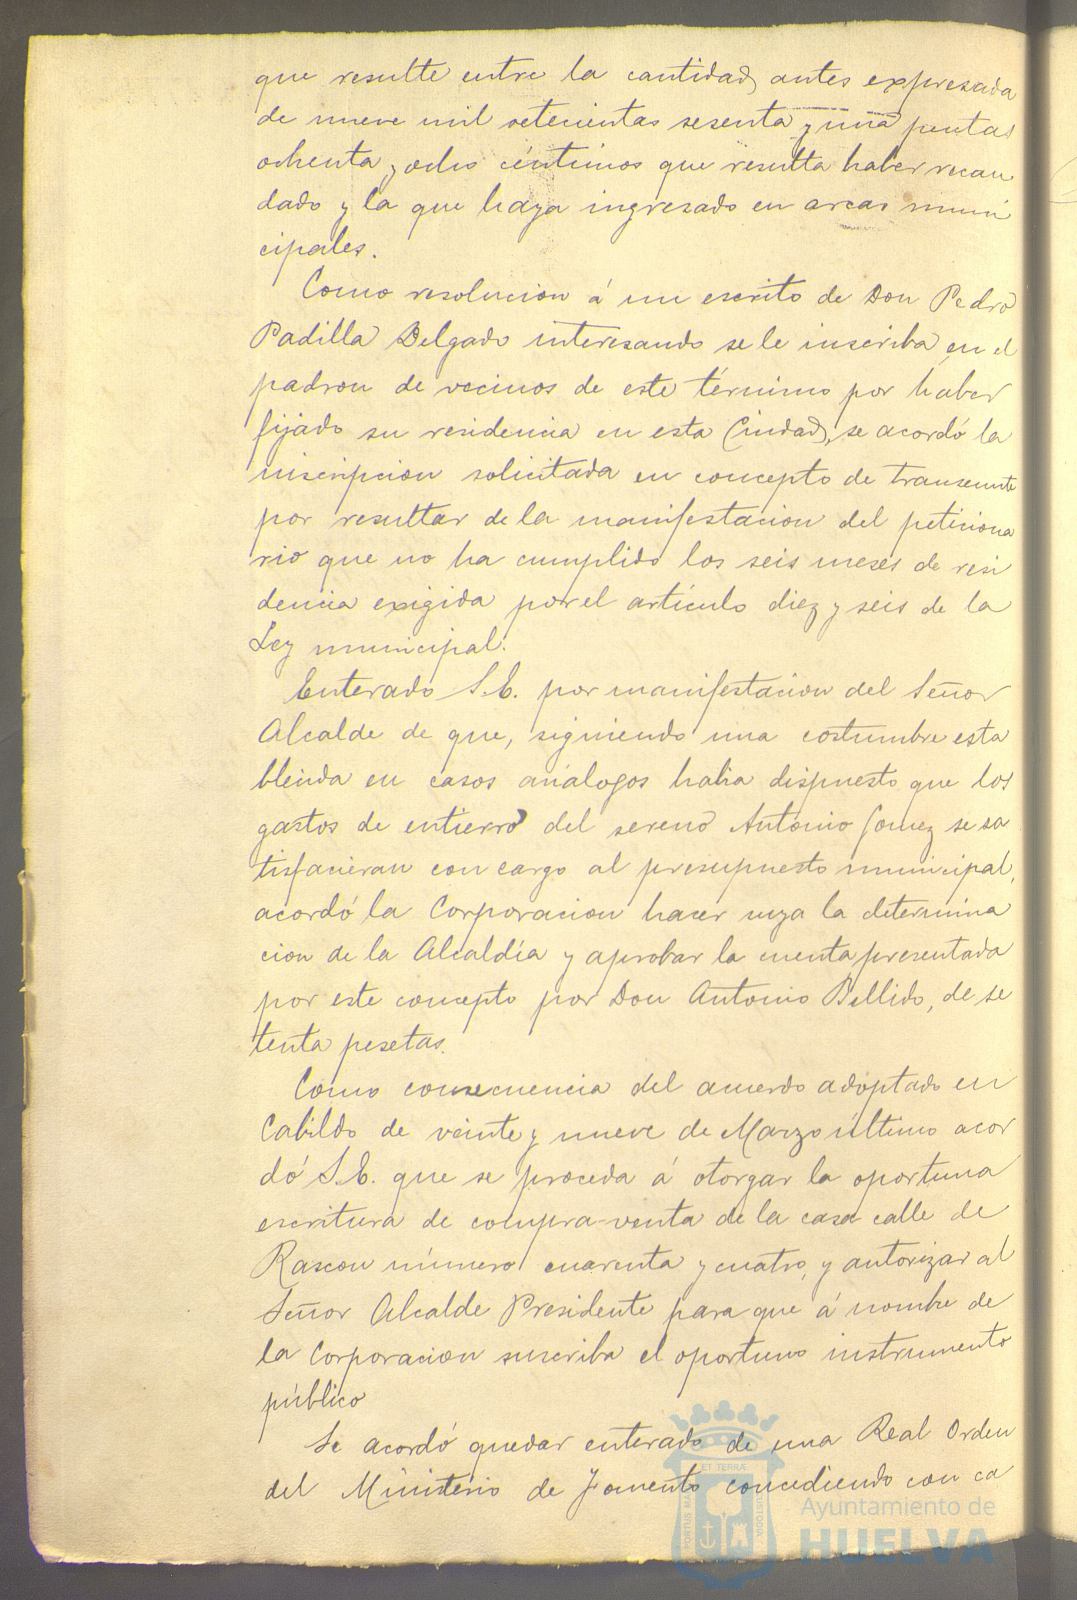 que resulte entre la cantidad antes expresada
de nueve mil setecientas sesenta y una pesetas
ochenta y ocho céntimos que resulta haber recau
dado y la que haya ingresado en arcas muni
cipales.
Como resolucion á un escrito de Don Pedro
Padilla Delgado interesando se le inscriba en el
padron de vecinos de este término por haber
fijado su residencia en esta Ciudad, se acordó la
inscripcion solicitada en concepto de transeunte
por resultar de la manifestacion del peticiona
rio que no ha cumplido los seis meses de resi
dencia exigida por el artículo diez y seis de la
Ley municipal.
Enterado S.E. por manifestacion del Señor
Alcalde de que, siguiendo una costumbre esta
blecida en casos análogos habia dispuesto que los
gastos de entierro del sereno Antonio Gomez se sa
tisfacieran con cargo al presupuesto municipal,
acordó la Corporacion hacer suya la determina
cion de la Alcaldía y aprobar la cuenta presentada
por este concepto por Don Antonio Bellido, de se
tenta pesetas.
Como consecuencia del acuerdo adoptado en
Cabildo de veinte y nueve de Marzo último acor
dó S.E. que se proceda á otorgar la oportuna
escritura de compra-venta de la casa calle de
Rascon número cuarenta y cuatro, y autorizar al
Señor Alcalde Presidente para que á nombre de
la Corporacion suscriba el oportuno instrumento
público
Se acordó quedar enterado de una Real Orden
del Ministerio de Fomento concediendo con ca
ET TERRAE
PORTUS MARIS
CUSTODIA
Ayuntamiento de
HUELVA